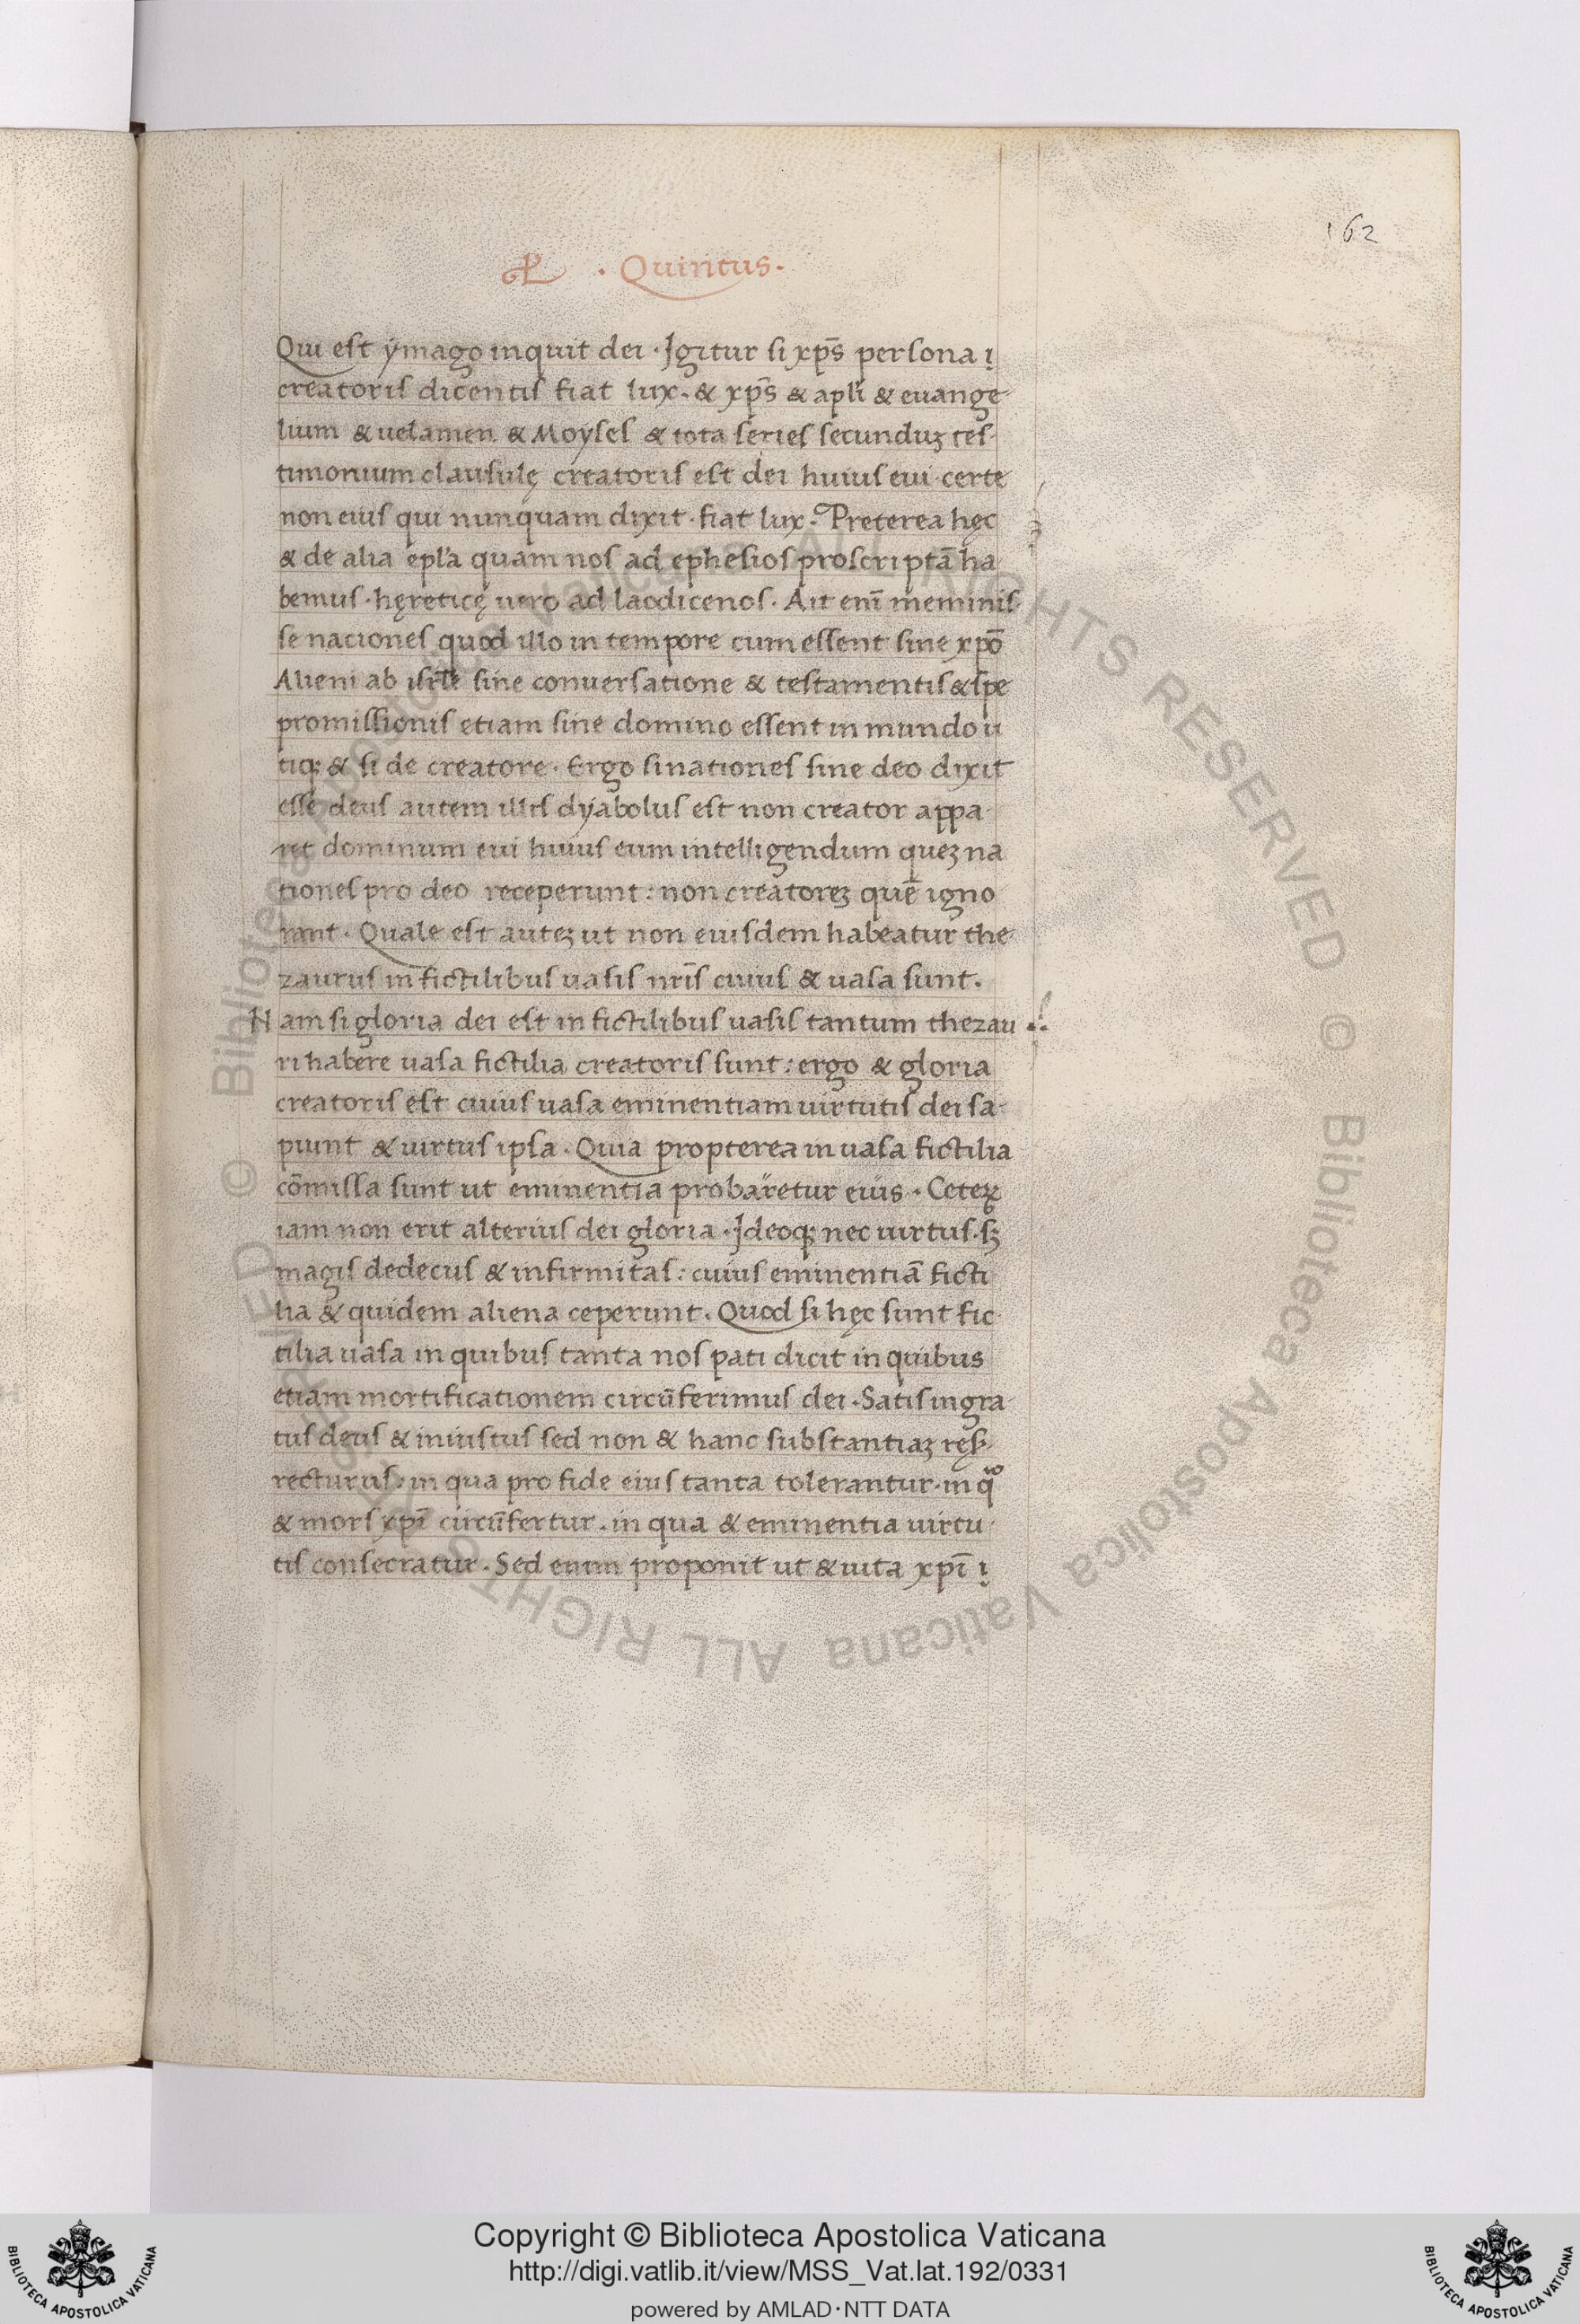 162
· Quintus ·
Qui est ÿmago inquit dei · Igitur si xp̄s persona ı
creatoris dicentis fiat lux · & xp̄s & apl'i & euange-
lium & uelamen & Moyses & tota series secunduꝫ tes-
timonium clausulę creatoris est dei huius eui · certe
non eius qui nunquam dixit · fiat lux · Preterea hęc
& de alia epl'a quam nos ad ephesios proscriptā ha
bemus · hęreticę uero ad laodicenos · Ait enī meminis-
se naciones quod illo in tempore cum essent sine xpō
Alieni ab isrl'e sine conuersatione & testamentis & spe
promissionis etiam sine domino essent in mundo u
tiqꝫ & si de creatore · Ergo si nationes sine deo dixit
esse deus autem illis dyabolus est non creator appa-
ret dominum eui huius eum intelligendum queꝫ na
tiones pro deo receperunt : non creatoreꝫ quē igno
rant · Quale est auteꝫ ut non eiusdem habeatur the-
zaurus in fictilibus uasis nrīs cuius & uasa sunt ·
Nam si gloria dei est in fictilibus uasis tantum thezau
ri habere uasa fictilia creatoris sunt : ergo & gloria
creatoris est cuius uasa eminentiam uirtutis dei sa-
piunt & uirtus ipsa · Quia propterea in uasa fictilia
cōmissa sunt ut eminentia probaretur eius · Ceteꝝ
iam non erit alterius dei gloria · Ideoqꝫ nec uirtus · sꝫ
magis dedecus & infirmitas : cuius eminentiā ficti
lia & quidem aliena ceperunt · Quod si hęc sunt fic-
tilia uasa in quibus tanta nos pati dicit in quibus
etiam mortificationem circūferimus dei · Satis ingra-
tus deus & iniustus sed non & hanc substantiaꝫ
recturus : in qua pro fide eius tanta tolerantur · in
& mors xpī circūfertur · in qua & eminentia uirtu-
tis consecratur · Sed enim proponit ut & uita xpī ı
© Biblioteca Apostolica Vaticana ALL RIGHTS RESERVED © Biblioteca Apostolica Vaticana ALL RIGHTS RESERVED
BIBLIOTECA APOSTOLICA VATICANA
Copyright © Biblioteca Apostolica Vaticana
http://digi.vatlib.it/view/MSS_Vat.lat.192/0331
powered by AMLAD·NTT DATA
BIBLIOTECA APOSTOLICA VATICANA